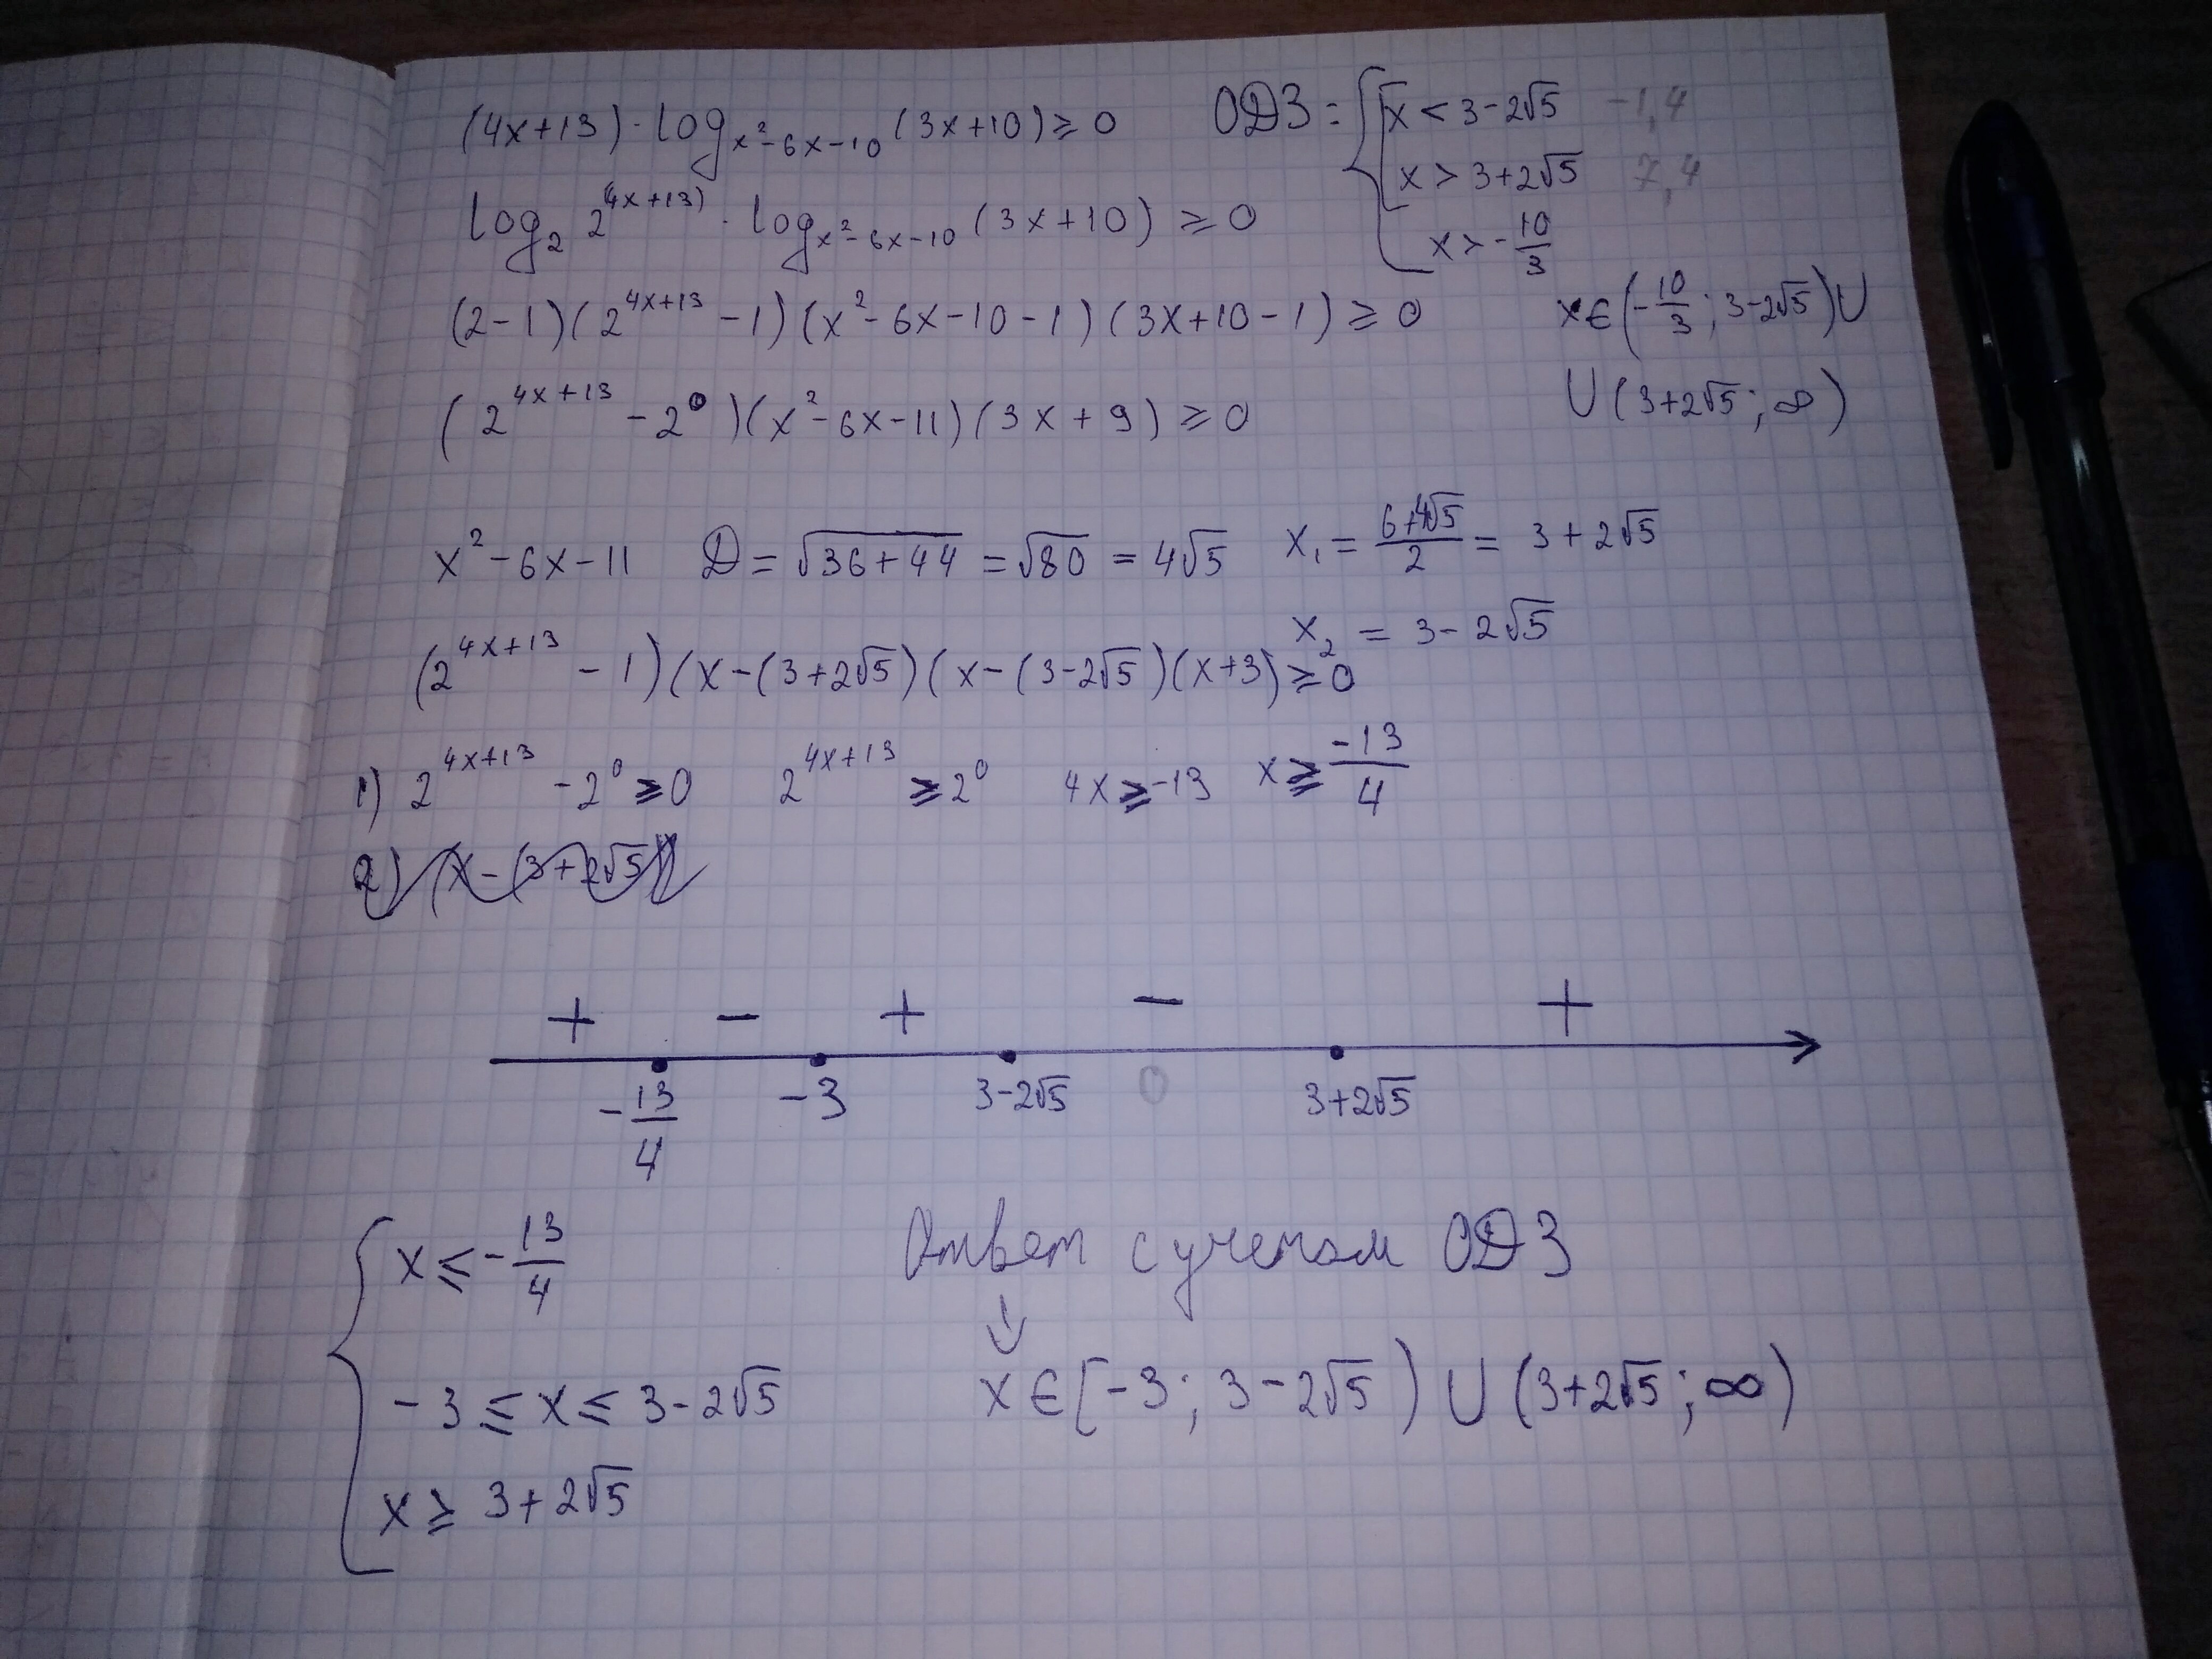 (4x+13)·log_{x²-6x-10}(3x+10) ≥ 0
ОДЗ: { [ x < 3-2√5 -1,4
x > 3+2√5 7,4
x > -10/3
log₂ 2^{(4x+13)} · log_{x²-6x-10}(3x+10) ≥ 0
(2-1)(2^{4x+13} - 1)(x²-6x-10-1)(3x+10-1) ≥ 0
x∈(-10/3; 3-2√5)∪
∪(3+2√5; ∞)
(2^{4x+13} - 2⁰)(x²-6x-11)(3x+9) ≥ 0
x²-6x-11 D = √(36+44) = √80 = 4√5 x₁ = (6+4√5)/2 = 3+2√5
x₂ = 3-2√5
(2^{4x+13} - 1)(x-(3+2√5)(x-(3-2√5)(x+3) ≥ 0
1) 2^{4x+13} - 2⁰ ≥ 0 2^{4x+13} ≥ 2⁰ 4x ≥ -13 x ≥ -13/4
2) (x-(3+2√5))
+ - + - +
-13/4 -3 3-2√5 0 3+2√5
{ x ≤ -13/4
-3 ≤ x ≤ 3-2√5
x ≥ 3+2√5
Ответ с учетом ОДЗ
↓
x∈[-3; 3-2√5)∪(3+2√5; ∞)